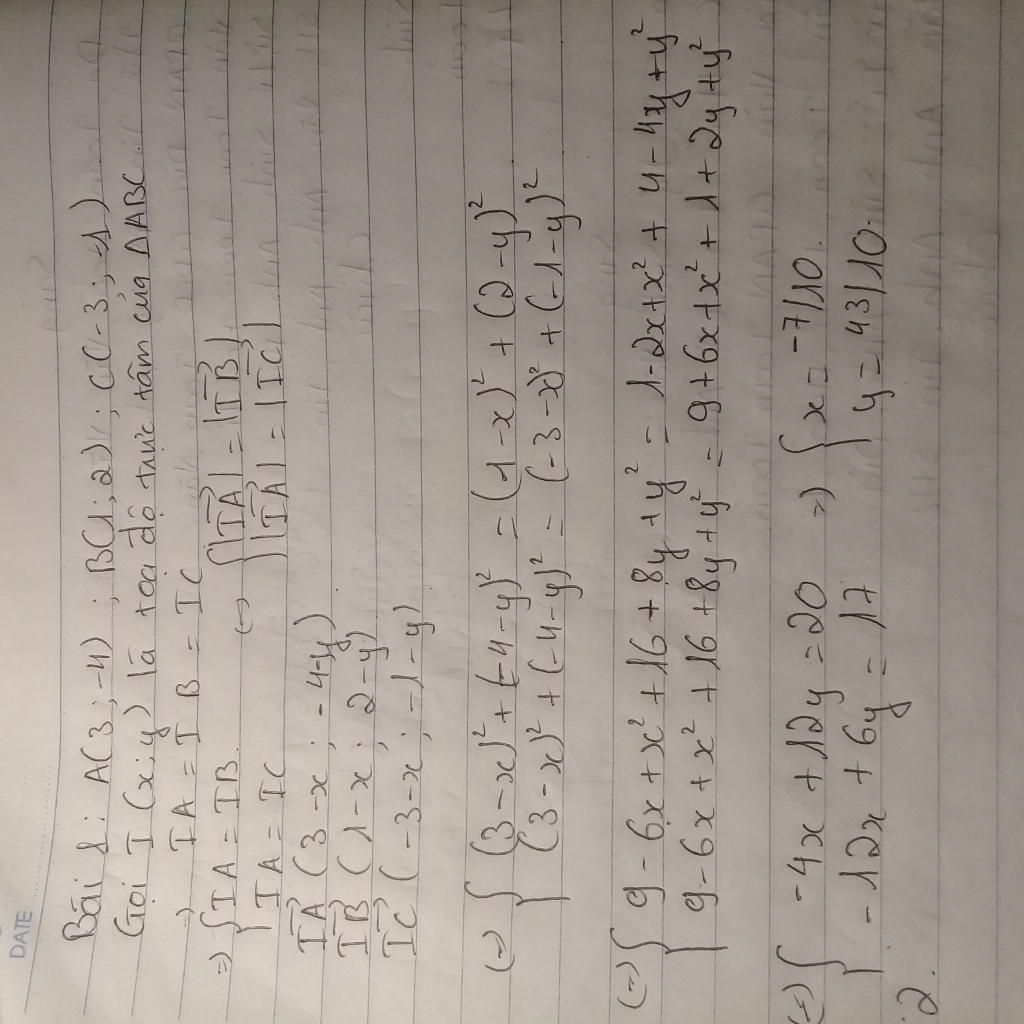 DATE
Bài 1: A(3;-4) ; B(1;2) ; C(-3;-1)
Gọi I (x;y) là tọa độ trực tâm của ΔABC
=> IA = IB = IC
=> { IA = IB (=) { |IA→| = |IB→|
{ IA = IC { |IA→| = |IC→|
IA→ (3-x ; -4-y)
IB→ (1-x ; 2-y)
IC→ (-3-x ; -1-y)
(=) { (3-x)² + (-4-y)² = (1-x)² + (2-y)²
{ (3-x)² + (-4-y)² = (-3-x)² + (-1-y)²
(=) { 9-6x+x²+16+8y+y² = 1-2x+x²+4-4y+y²
{ 9-6x+x²+16+8y+y² = 9+6x+x²+1+2y+y²
(=) { -4x+12y=20 => { x = -7/10.
{ -12x+6y=17 { y = 43/10.
2.